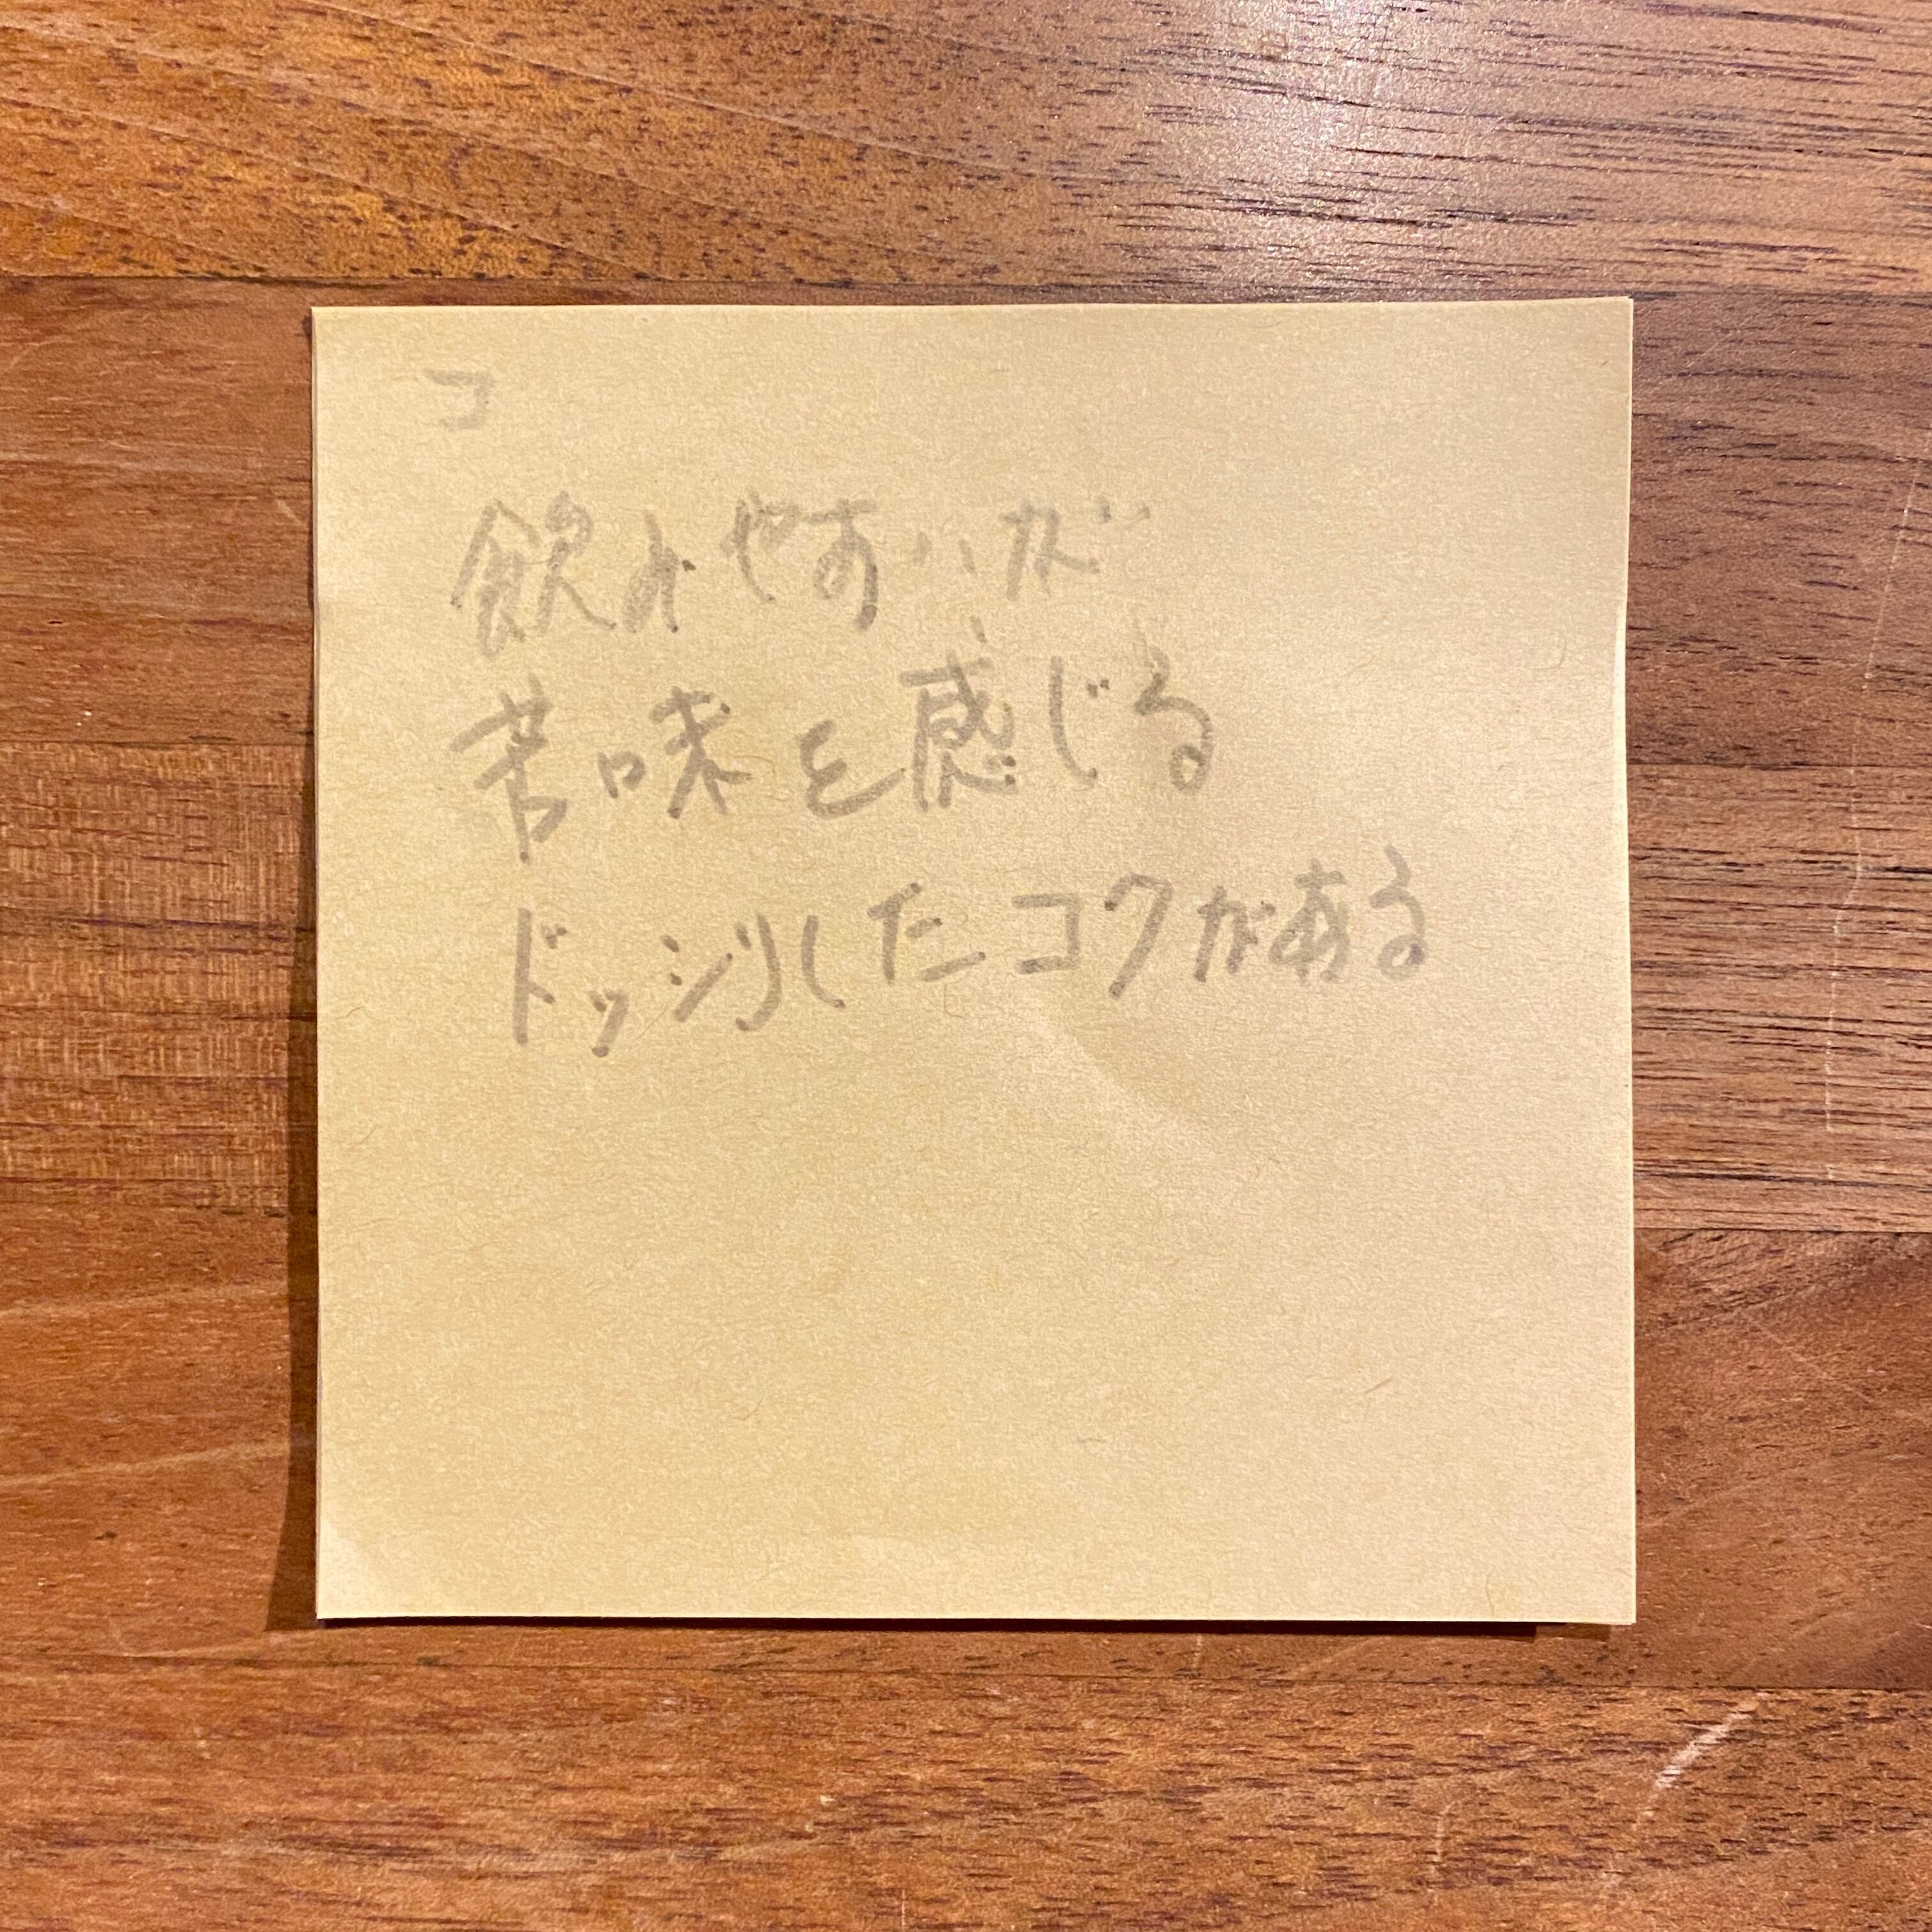 コ
飲みやすいが
苦味を感じる
ドッシリしたコクがある